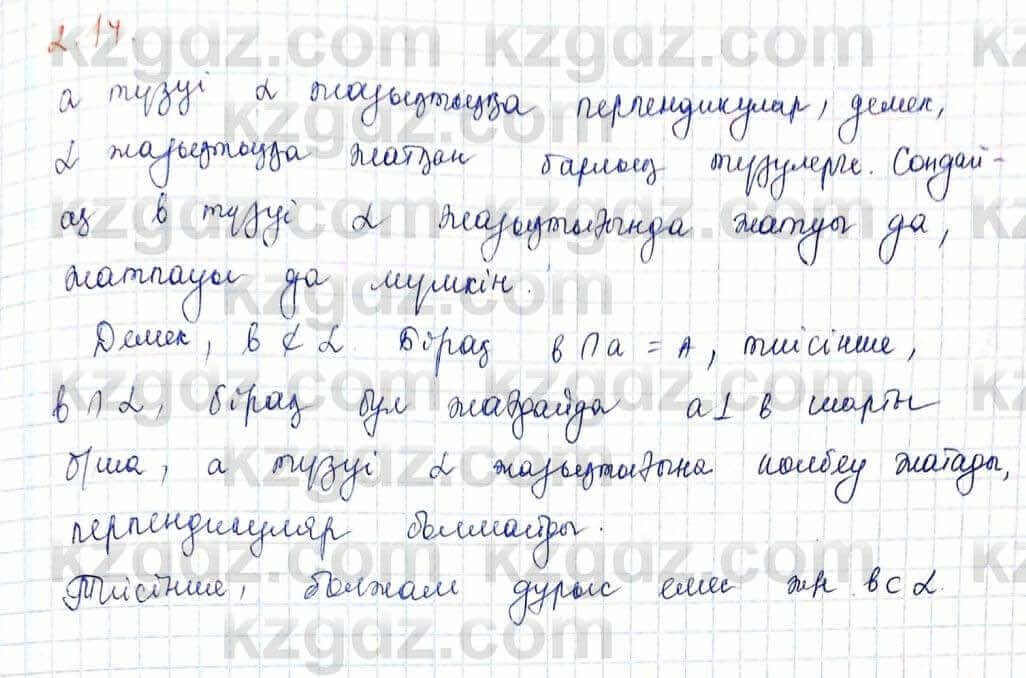 2.14.
а түзуі α жазықтыққа перпендикуляр, демек,
α жазықтыққа жатқан барлық түзулерге. Сондай-
ақ в түзуі α жазықтығында жатуы да,
жатпауы да мүмкін.
Демек, в ⊄ α. Бірақ в ∩ а = А, тиісінше,
в ∩ α, бірақ бұл жағдайда а ⊥ в шарты
б/ша, а түзуі α жазықтығына көлбеу жатады,
перпендикуляр болмайды.
Тиісінше, болжам дұрыс емес және в ⊂ α.